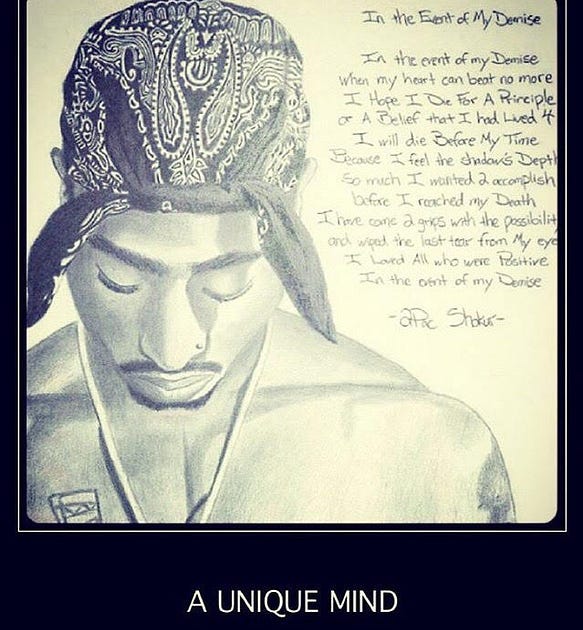 In the Event of My Demise
In the event of my Demise
when my heart can beat no more
I Hope I Die For A Principle
or A Belief that I had Lived 4
I will die Before My Time
Because I feel the shadow's Depth
so much I wanted 2 accomplish
before I reached my Death
I have come 2 grips with the possibilit
and wiped the last tear from My eye
I Loved All who were Positive
In the event of my Demise
-2Pac Shakur-
A UNIQUE MIND